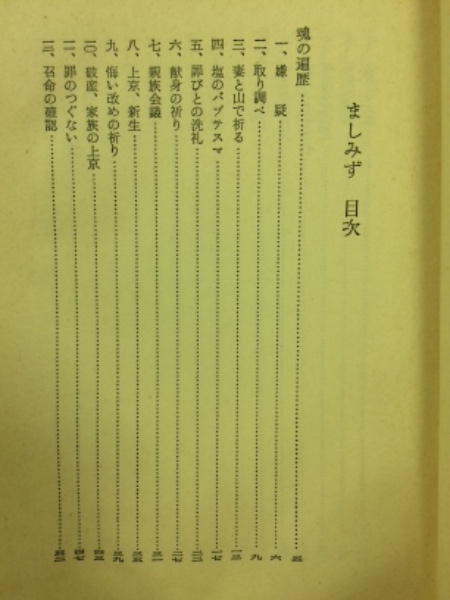 ましみず 目次
魂の遍歴……五
一、嫌疑……六
二、取り調べ……九
三、妻と山で祈る……一三
四、塩のバプテスマ……一七
五、罪びとの洗礼……二二
六、献身の祈り……二七
七、親族会議……三一
八、上京、新生……三五
九、悔い改めの祈り……三九
一〇、破産、家族の上京……四三
一一、罪のつぐない……四七
一二、召命の確認……五二